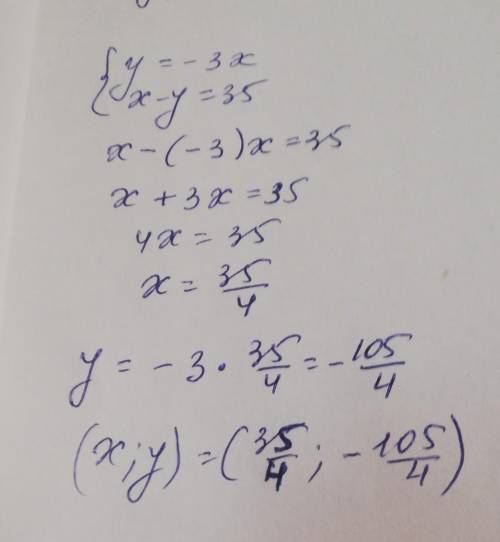 {y = - 3x
x - y = 35
x - (- 3)x = 35
x + 3x = 35
4x = 35
x = 35/4
y = - 3 · 35/4 = - 105/4
(x; y) = (35/4; - 105/4)